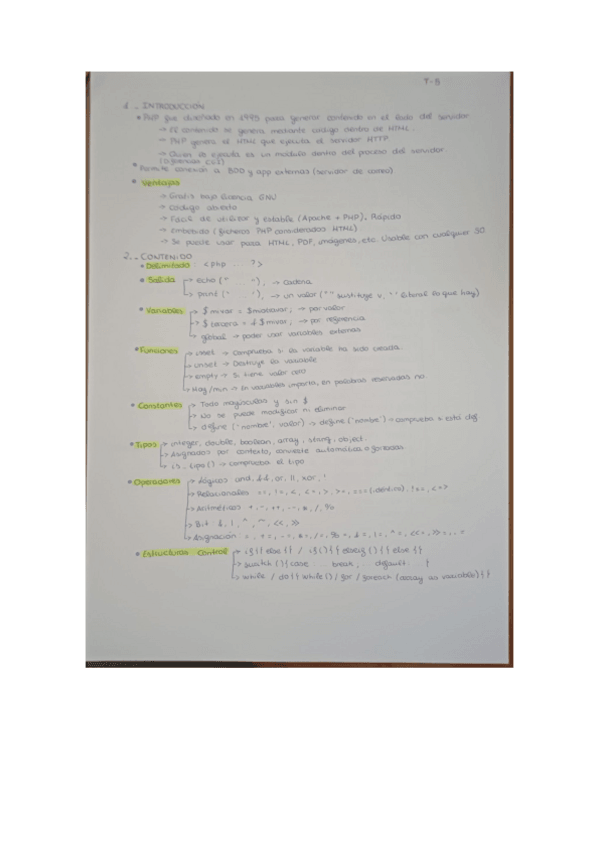 T-3
1.- INTRODUCCIÓN
• PHP fue diseñado en 1995 para generar contenido en el lado del servidor
→ El contenido se genera mediante código dentro de HTML.
→ PHP genera el HTML que ejecuta el servidor HTTP
→ Quien lo ejecuta es un módulo dentro del proceso del servidor.
• Permite conexión a BDD y app externas (servidor de correo)
• Ventajas
→ Gratis bajo licencia GNU
→ Código abierto
→ Fácil de utilizar y estable (Apache + PHP). Rápido
→ Embebido (ficheros PHP considerados HTML)
→ Se puede usar para HTML, PDF, imágenes, etc. Usable con cualquier SO
2.- CONTENIDO
• Delimitado: <php ... ?>
• Salida → echo (" ... "); → cadena
→ print (" ... "); → un valor (" " sustituye v, ' ' literal lo que hay)
• Variables → $mivar = $miotravar; → por valor
→ $tercera = &$mivar; → por referencia
global → poder usar variables externas
• Funciones → isset → Comprueba si la variable ha sido creada.
→ unset → Destruye la variable
→ empty → Si tiene valor cero
→ May/min → En variables importa, en palabras reservadas no.
• Constantes → Todo mayúsculas y sin $
→ No se puede modificar ni eliminar
→ define ('nombre', valor) → define ('nombre') → comprueba si está def.
• Tipos → integer, double, boolean, array, string, object.
→ Asignados por contexto, convierte automática o forzada
→ is_tipo() → comprueba el tipo
• Operadores → Lógicos and, &&, or, ||, xor, !
→ Relacionales ==, !=, <, <=, >, >=, === (idéntico), !==, <=>
→ Aritméticos +, -, ++, --, *, /, %
→ Bit &, |, ^, ~, <<, >>
→ Asignación =, +=, -=, *=, /=, %=, &=, |=, ^=, <<=, >>=, .=
• Estructuras Control → if {} else {} / if () {} elseif () {} else {}
→ switch () { case ... break; ... default ... }
→ while / do {} while () / for / foreach (array as variable) {}